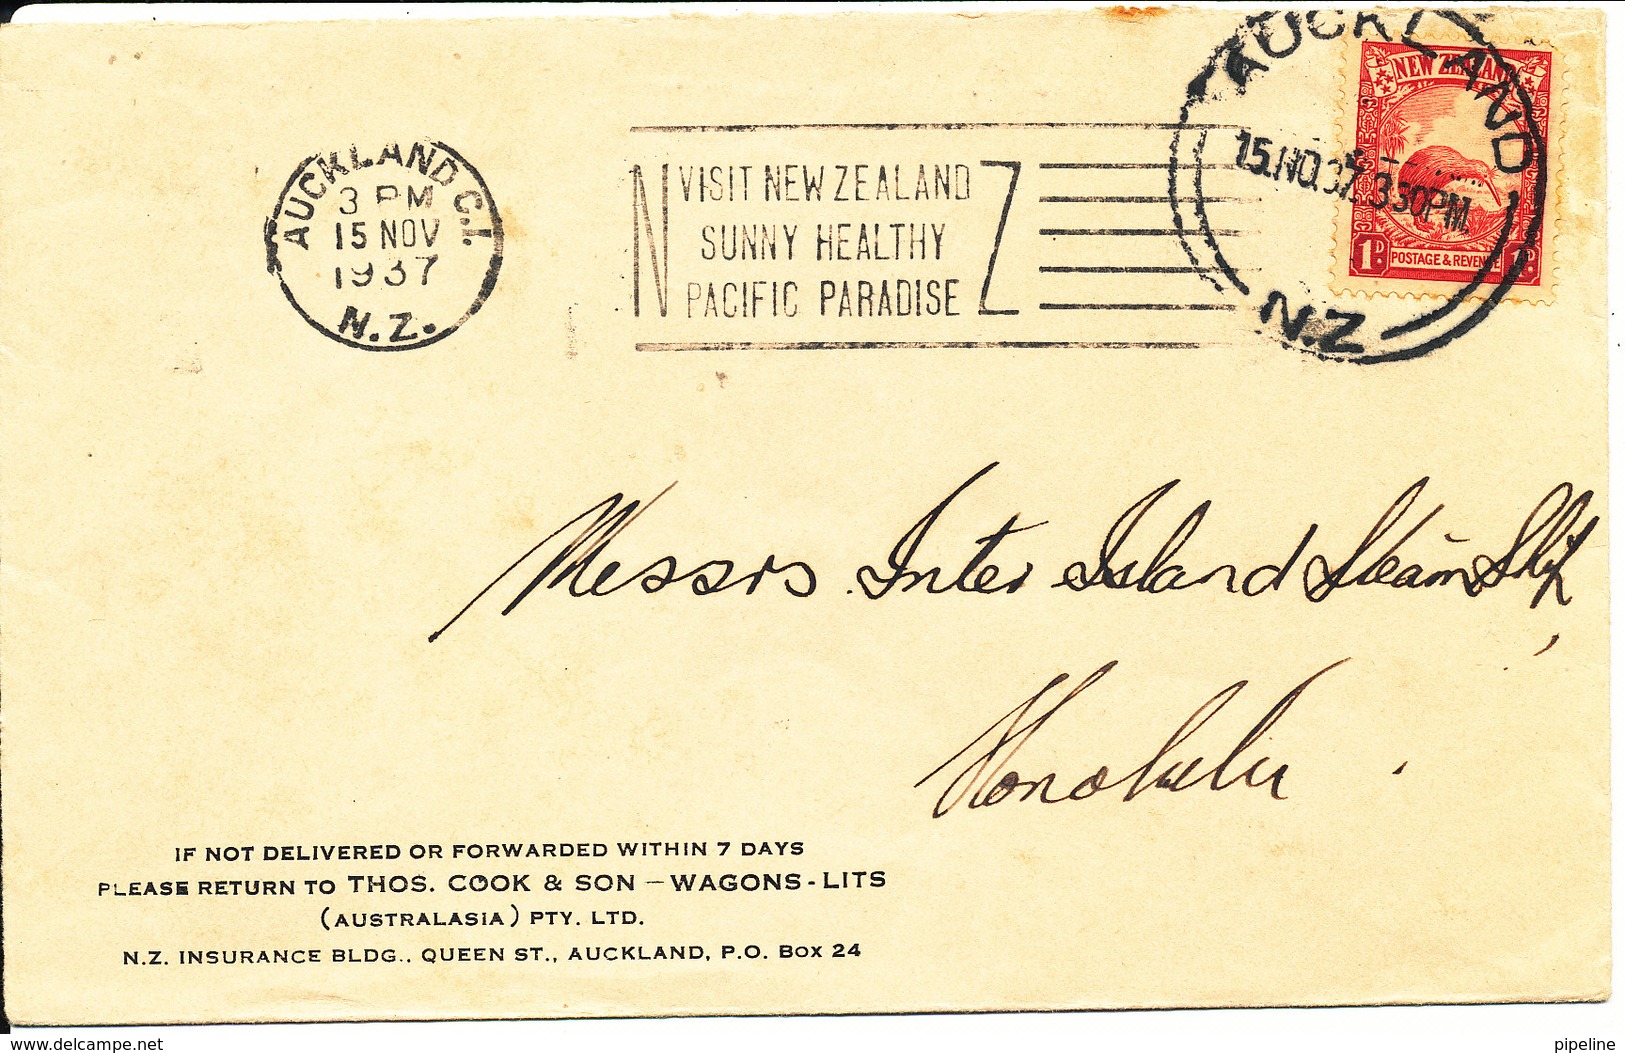 AUCKLAND C.1.
3 PM
15 NOV
1937
N.Z.
N Z
VISIT NEW ZEALAND
SUNNY HEALTHY
PACIFIC PARADISE
AUCKLAND
15.NO.37. 3 30PM.
N.Z
NEW ZEALAND
1D. POSTAGE & REVENUE 1D.
Messrs Inter Island Steam Ship,
Honolulu.
IF NOT DELIVERED OR FORWARDED WITHIN 7 DAYS
PLEASE RETURN TO THOS. COOK & SON – WAGONS-LITS
(AUSTRALASIA) PTY. LTD.
N.Z. INSURANCE BLDG., QUEEN ST., AUCKLAND, P.O. BOX 24
www.delcampe.net
pipeline